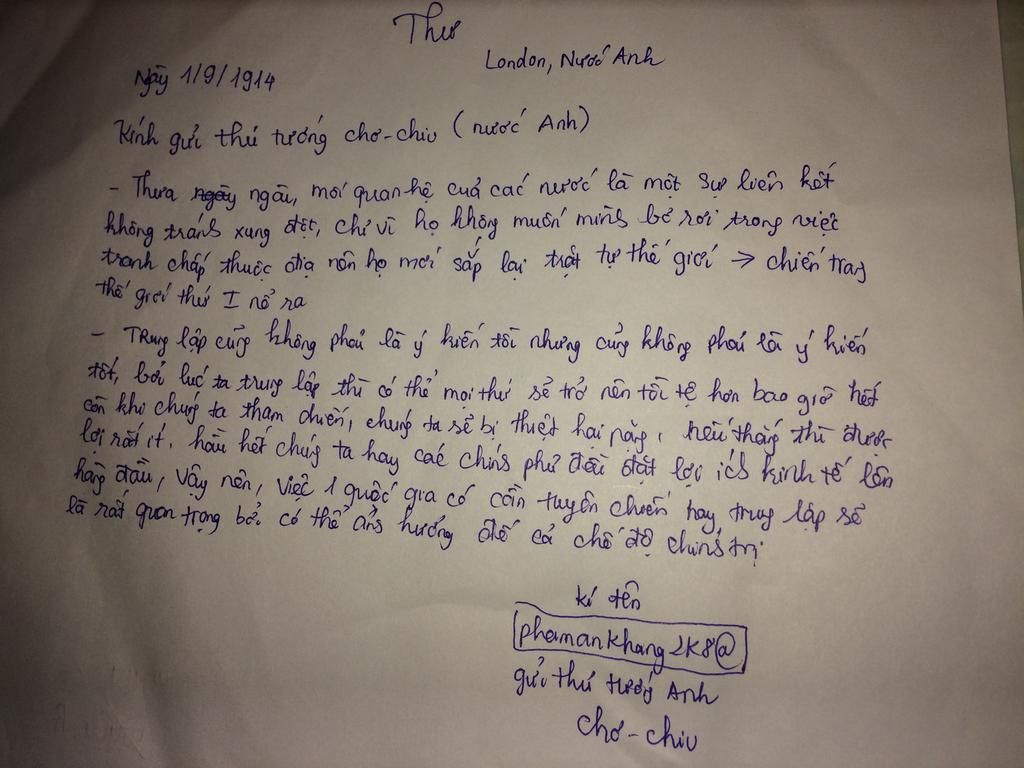 Thư
London, Nước Anh
Ngày 1/9/1914
Kính gửi thủ tướng chơ-chiu (nước Anh)
- Thưa ngày ngài, mối quan hệ của các nước là một sự liên kết
không tránh xung đột, chỉ vì họ không muốn mình bỏ rơi trong việc
tranh chấp thuộc địa nên họ mới sắp lại trật tự thế giới → chiến tranh
thế giới thứ I nổ ra
- Trung lập cũng không phải là ý kiến tồi nhưng cũng không phải là ý kiến
tốt, bởi lúc ta trung lập thì có thể mọi thứ sẽ trở nên tồi tệ hơn bao giờ hết
còn khi chúng ta tham chiến, chúng ta sẽ bị thiệt hại nặng, nếu thắng thì được
lợi rất ít. hầu hết chúng ta hay các chính phủ đều đặt lợi ích kinh tế lên
hàng đầu, Vậy nên, việc 1 quốc gia có cần tuyên chiến hay trung lập sẽ
là rất quan trọng bởi có thể ảnh hưởng đế cả chế độ chính trị
kí tên
phamankhang2k8@
gửi thủ tướng Anh
chơ-chiu